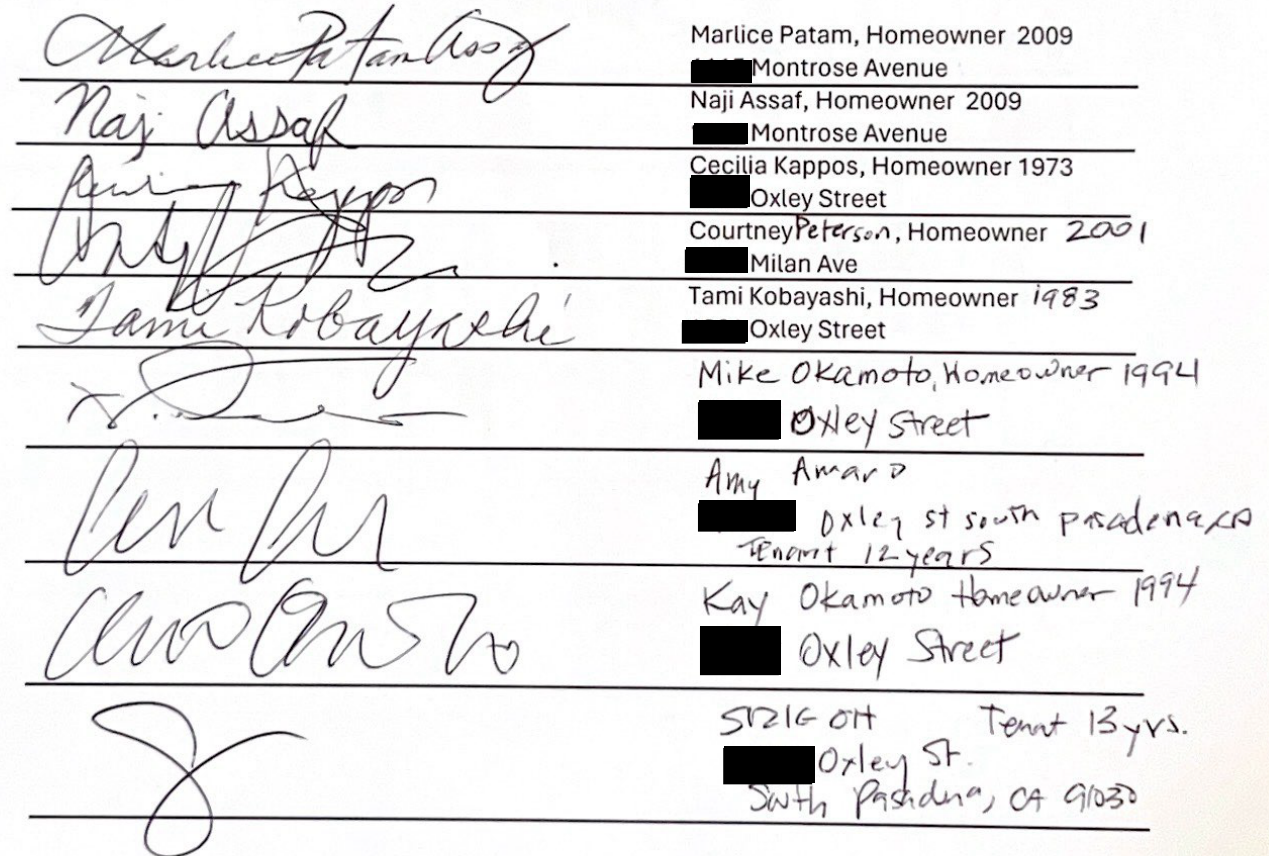 Marlice Patam Assaf
Marlice Patam, Homeowner 2009
Montrose Avenue
Naji Assaf
Naji Assaf, Homeowner 2009
Montrose Avenue
Kappos
Cecilia Kappos, Homeowner 1973
Oxley Street
Courtney Peterson, Homeowner 2001
Milan Ave
Tami Kobayashi
Tami Kobayashi, Homeowner 1983
Oxley Street
Mike Okamoto, Homeowner 1994
Oxley Street
Amy Amaro
Oxley st south pasadena, ca
Tenant 12 years
Kay Okamoto Homeowner 1994
Oxley Street
OH Tenant 13 yrs.
Oxley St.
South Pasadena, CA 91030